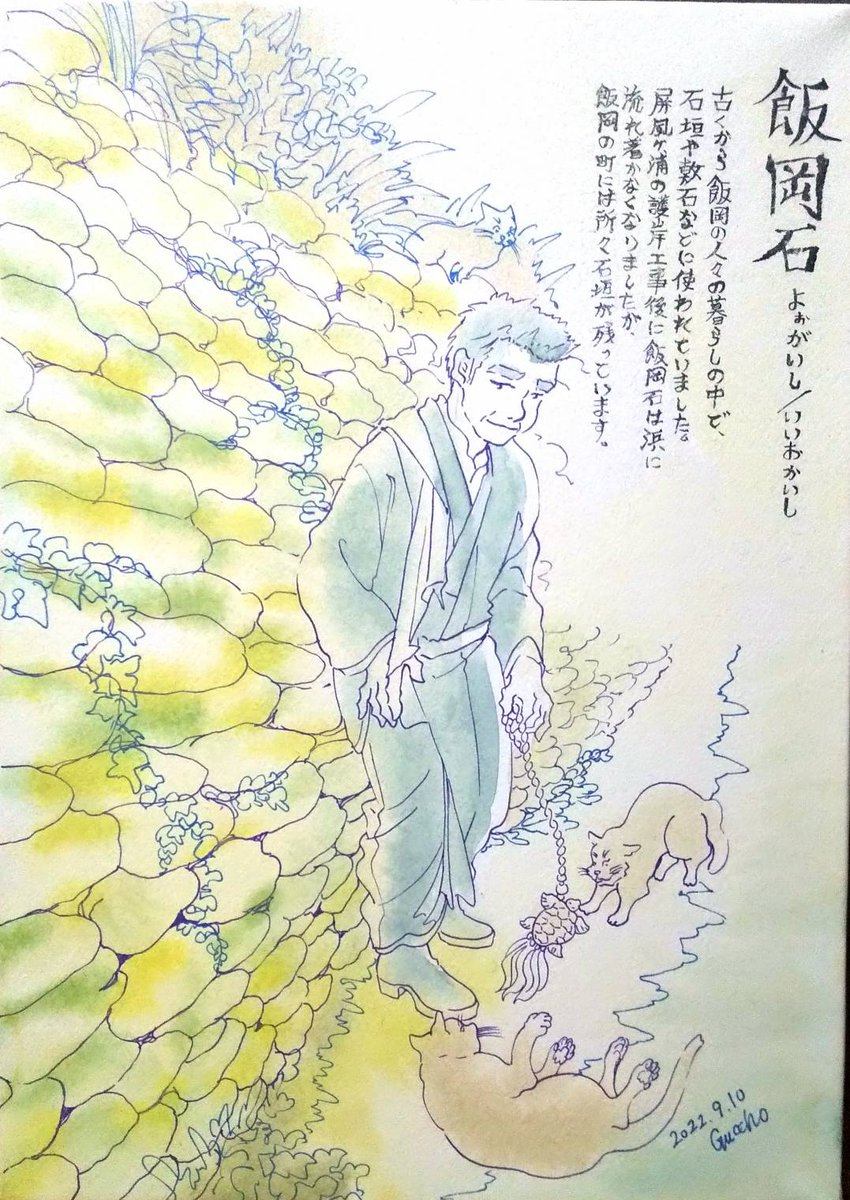 飯岡石
よぉがいし/いいおかいし
古くから飯岡の人々の暮らしの中で、
石垣や敷石などに使われていました。
屏風ヶ浦の護岸工事後に飯岡石は浜に
流れ着かなくなりましたが、
飯岡の町には所々石垣が残っています。
2022.9.10
Guocho